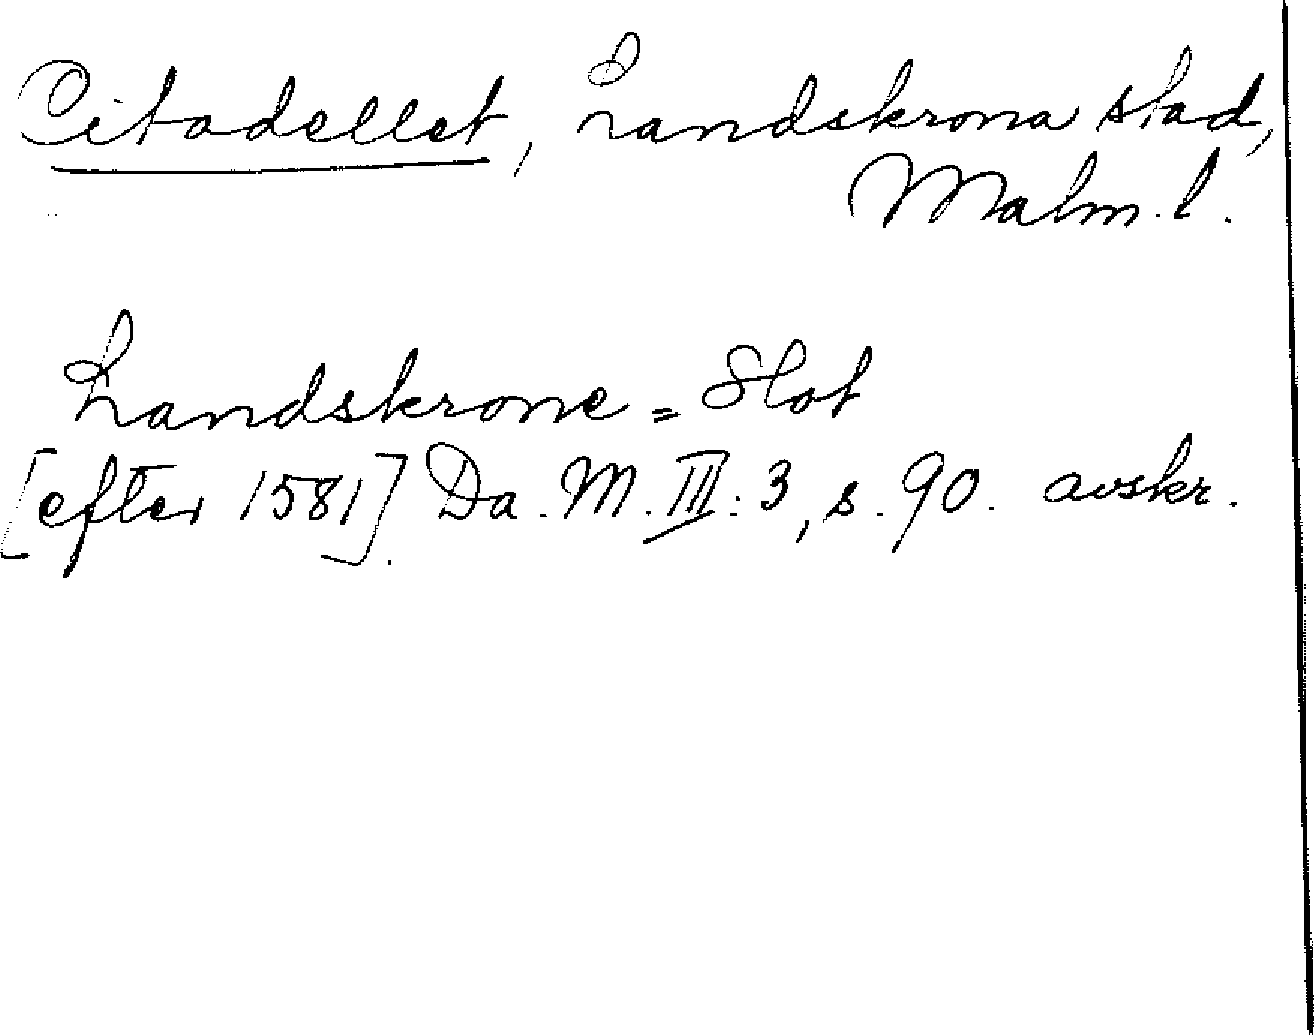 Citadellet, Landskrona stad,
Malm. l.
Landskrone=Slot
[efter 1581]. Da. M. III: 3, s. 90. avskr.